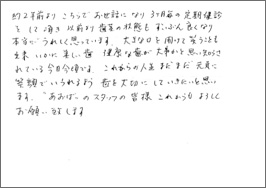 約2年前より こちらでお世話になり 3ヶ月毎の定期健診
をして頂き 以前より 歯茎の状態も ずいぶん良くなり
本当にうれしく思っています 大きな口を開けて笑うことも
出来 いかに美しい歯 健康な歯が大事かを思い知らさ
れている今日今頃です。これからの人生まだまだ元気に
笑顔でいられるよう 歯を大切にしていきたいと思い
ます。 あおばーのスタッフの皆様 これからもよろしく
お願い致します